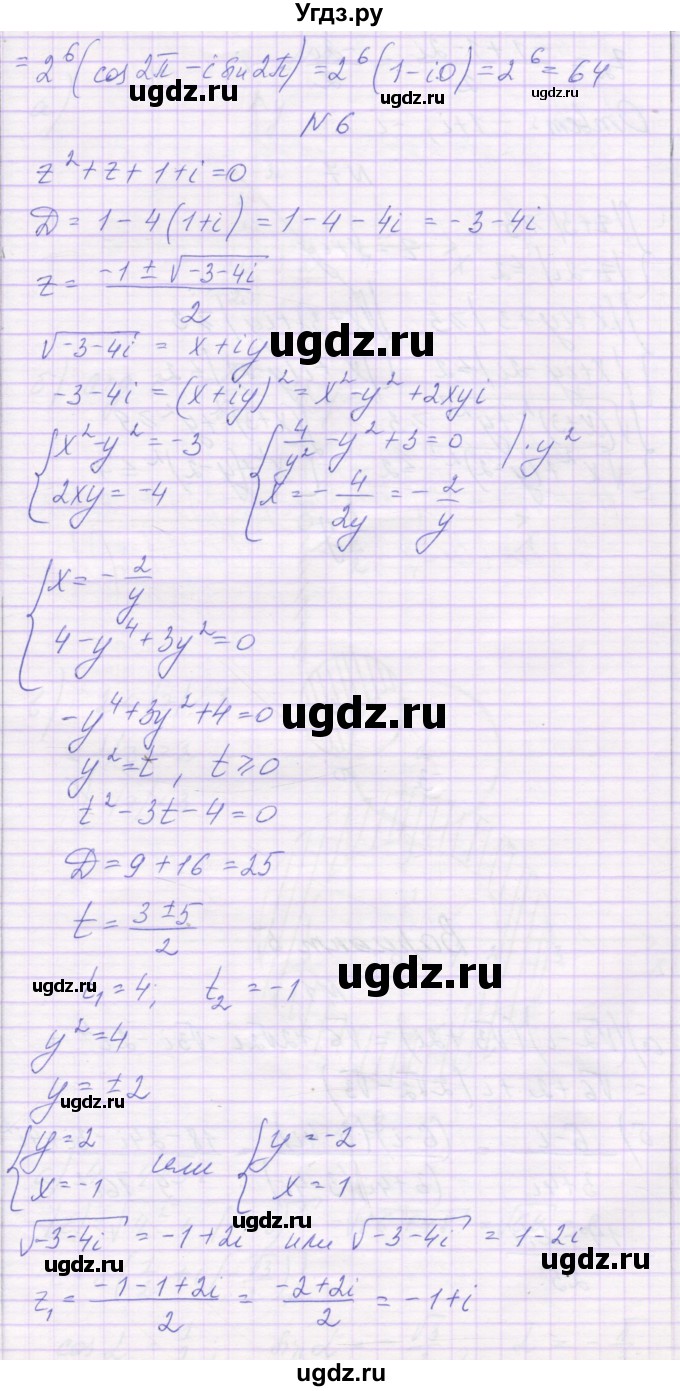 Угдз.ру
= 2⁶(cos2π - i sin2π) = 2⁶(1 - i0) = 2⁶ = 64
ugdz.ru ugdz.ru ugdz.ru
N 6
z² + z + 1 + i = 0
D = 1 - 4(1+i) = 1 - 4 - 4i = -3 - 4i
z = (-1 ± √(-3-4i))/2
√(-3-4i) = x + iy
ugdz.ru
-3 - 4i = (x+iy)² = x² - y² + 2xyi
{ x² - y² = -3 { 4/y² - y² + 3 = 0 | · y²
2xy = -4 x = -4/2y = -2/y
{ x = -2/y
4 - y⁴ + 3y² = 0
-y⁴ + 3y² + 4 = 0
ugdz.ru
y² = t, t ⩾ 0
t² - 3t - 4 = 0
D = 9 + 16 = 25
t = (3 ± 5)/2
ugdz.ru ugdz.ru
t₁ = 4; t₂ = -1
y² = 4
y = ±2
ugdz.ru
{ y = 2 или { y = -2
x = -1 x = 1
√(-3-4i) = -1 + 2i или √(-3-4i) = 1 - 2i
ugdz.ru ugdz.ru
z₁ = (-1-1+2i)/2 = (-2+2i)/2 = -1 + i
ugdz.ru
ugdz.ru